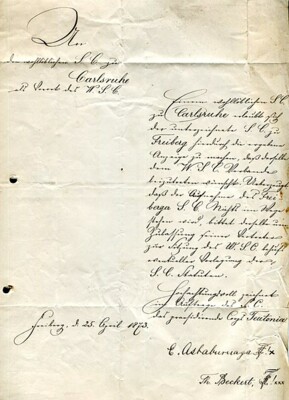 An
den wohllöblichen S. C. zu
Carlsruhe
als Vorort des W. S. C.
Einem wohllöblichen S. C.
zu Carlsruhe erlaubt sich
der unterzeichnete S. C. zu
Freiberg hierdurch die ergebene
Anzeige zu machen, daß derselbe
dem W. S. C. Verbande
beizutreten wünscht. Überzeugt
daß der Aufnahme des Frei-
berger S. C. Nichts im Wege
stehen wird, bittet derselbe um
Zulassung seiner Vertreter
zur Sitzung des W. S. C. behufs
Vorlegung der
S. C. Statuten.
Hochachtungsvoll zeichnet
im Auftrag des S. C.
das präsidirende Corps Teutonia
Freiberg, d. 25. April 1873.
C. x
Th. Beckert, xxx